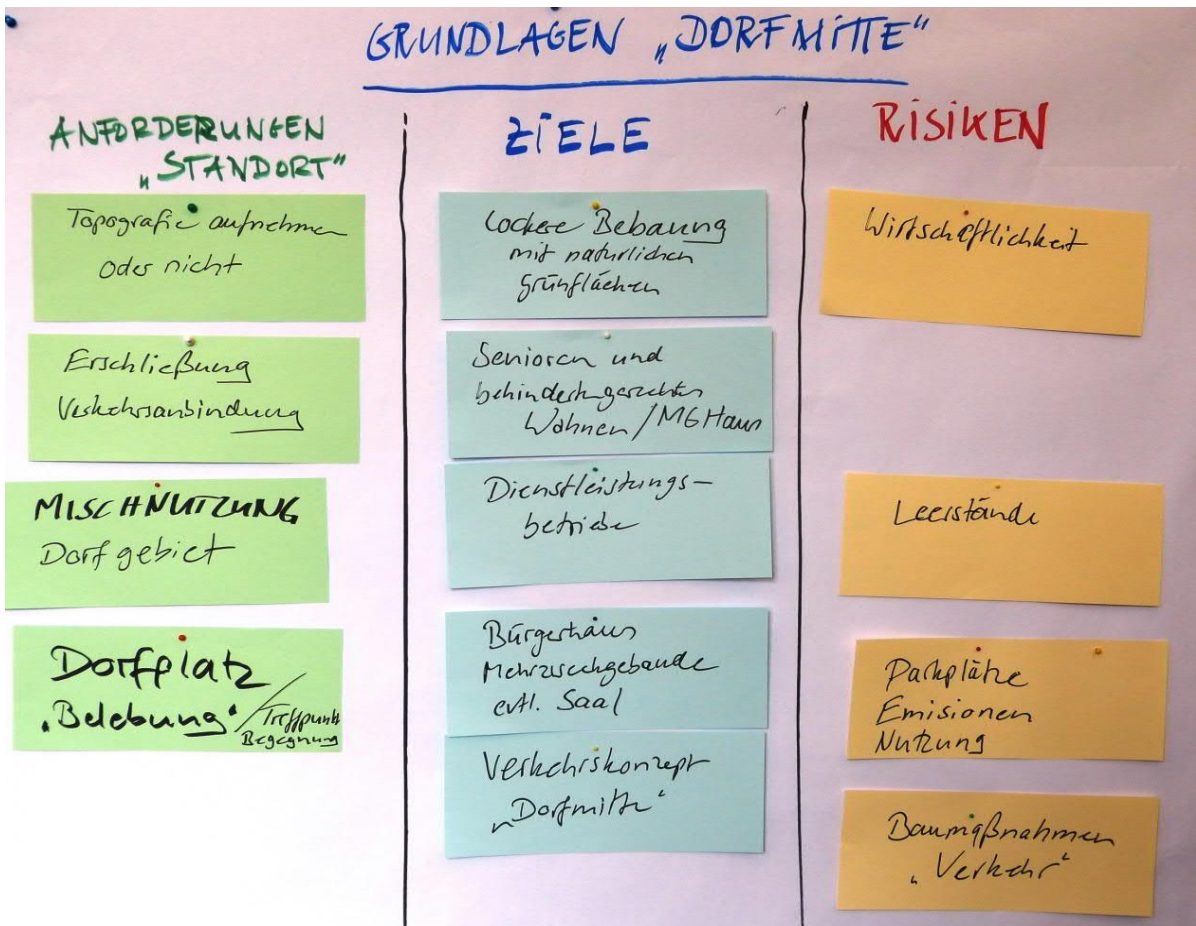 GRUNDLAGEN „DORFMITTE"
ANFORDERUNGEN
„STANDORT"
Topografie aufnehmen
oder nicht
Erschließung
Verkehrsanbindung
MISCHNUTZUNG
Dorfgebiet
Dorfplatz
„Belebung" / Treffpunkt
Begegnung
ZIELE
Lockere Bebauung
mit natürlichen
Grünflächen
Senioren und
behindertengerechtes
Wohnen / MGHaus
Dienstleistungs-
betriebe
Bürgerhaus
Mehrzweckgebäude
evtl. Saal
Verkehrskonzept
„Dorfmitte"
RISIKEN
Wirtschaftlichkeit
Leerstände
Parkplätze
Emisionen
Nutzung
Baumaßnahmen
„Verkehr"